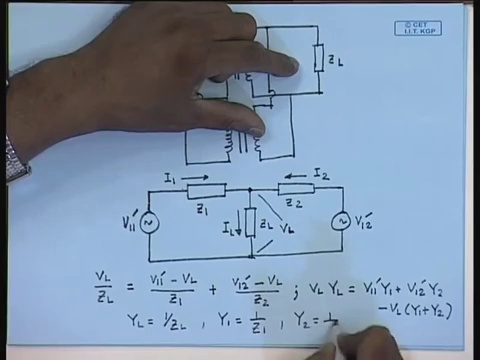 © CET
I.I.T. KGP
Z_L
I_1 → ← I_2
Z_1 Z_2
V_11' ~ I_L ↓ Z_L V_L ~ V_12'
V_L/Z_L = (V_11' - V_L)/Z_1 + (V_12' - V_L)/Z_2 ; V_L Y_L = V_11' Y_1 + V_12' Y_2
- V_L (Y_1 + Y_2)
Y_L = 1/Z_L , Y_1 = 1/Z_1 , Y_2 = 1/